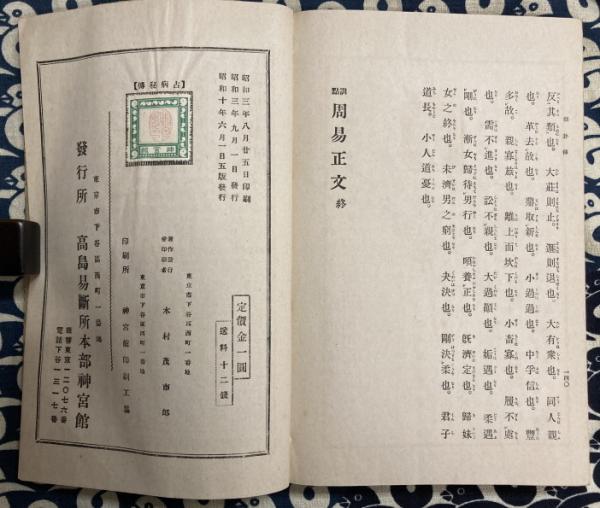 反其類也。大莊則止。遯則退也。大有衆也。同人親
也。革去故也。鼎取新也。小過過也。中孚信也。豐
多故。親寡旅也。離上而坎下也。小畜寡也。履不處
也。需不進也。訟不親也。大過顚也。姤遇也。柔遇
剛也。漸女歸待男行也。頤養正也。旣濟定也。歸妹
女之終也。未濟男之窮也。夬決也。剛決柔也。君子
道長。小人道憂也。
訓點 周易正文 終
一四〇
定價金一圓
送料十二錢
【占病秘傳】
神宮館
昭和三年八月廿五日印刷
昭和三年九月一日發行
昭和十年六月一日五版發行
東京市下谷區西町一番地
著作發行
兼印刷者 木村茂市郎
東京市下谷區西町一番地
印刷所 神宮館印刷工場
東京市下谷區西町一番地
發行所 高島易斷所本部神宮館
振替東京一二〇七六番
電話下谷一三一七番